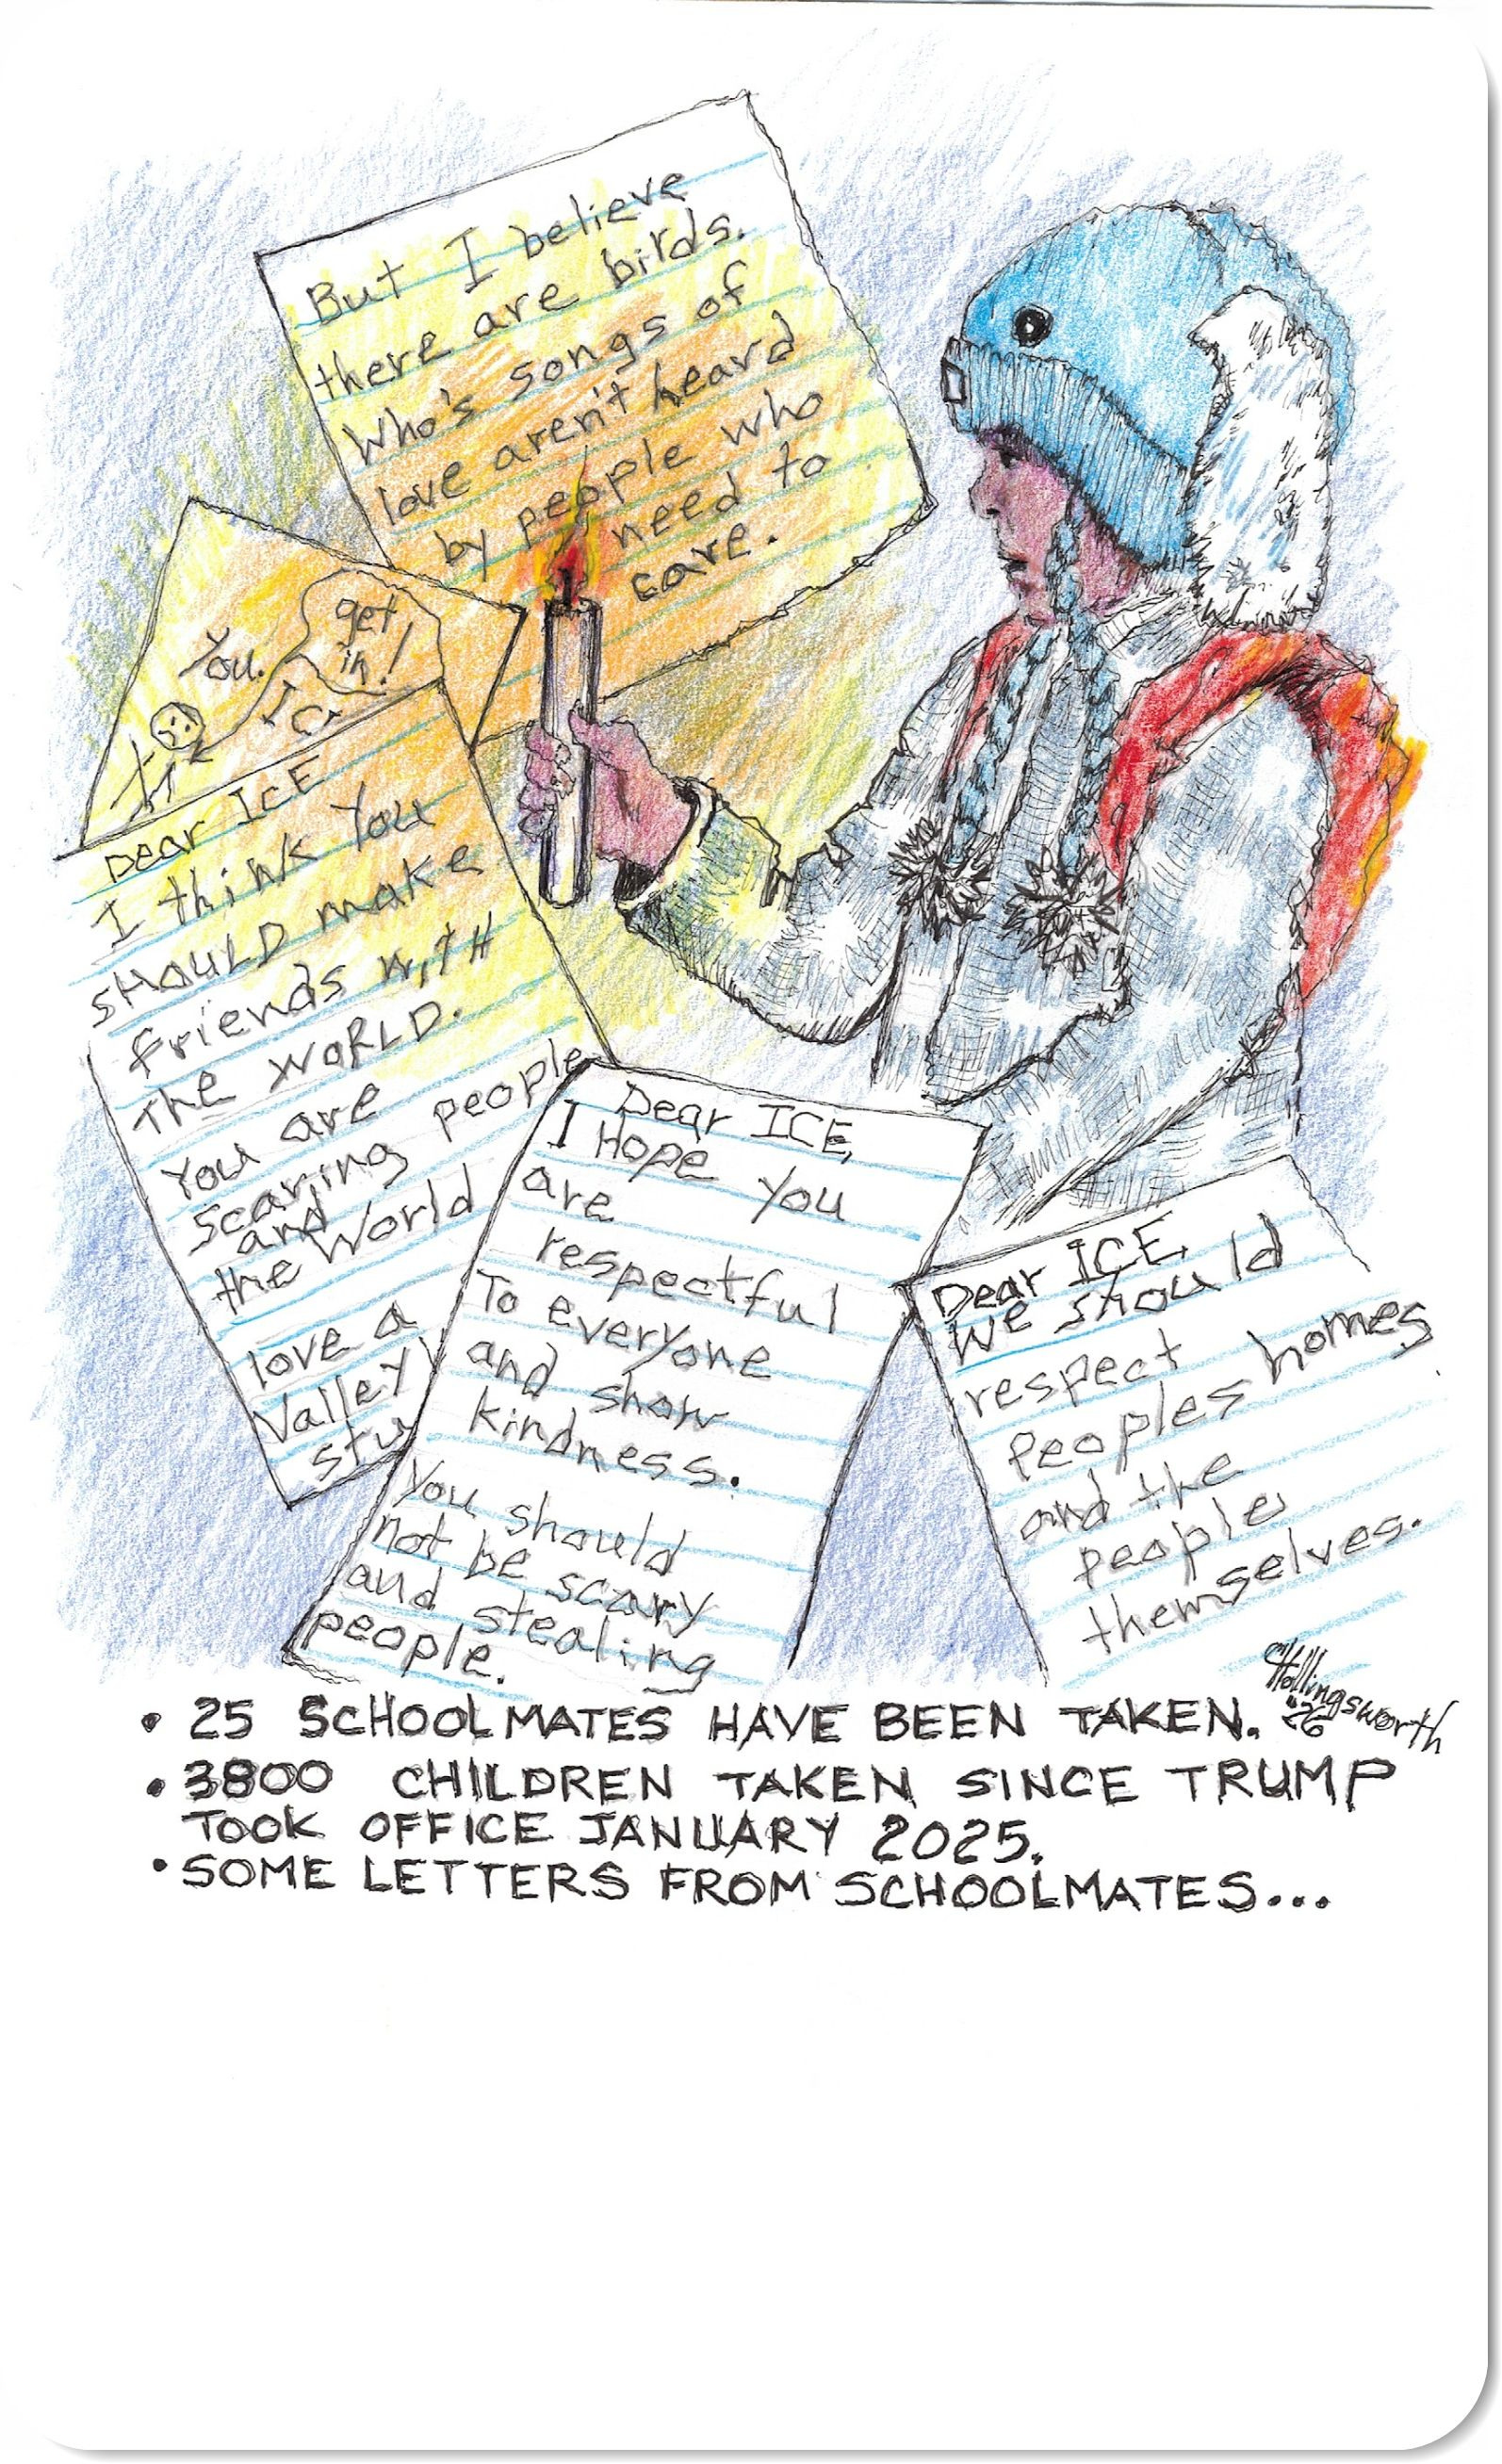 But I believe
there are birds.
Who's songs of
love aren't heard
by people who
need to
care.
You.
get
in!
Dear ICE
I think You
SHOULD make
friends WITH
THE WORLD.
You are
scaring people
and
the World
love a
Valley
stu
Dear ICE,
I Hope you
are
respectful
To everyone
and show
kindness.
You should
not be scary
and stealing
people.
Dear ICE,
We should
respect
peoples homes
and the
people
themselves.
CHollingsworth
'26
• 25 SCHOOLMATES HAVE BEEN TAKEN.
• 3800 CHILDREN TAKEN SINCE TRUMP
TOOK OFFICE JANUARY 2025.
• SOME LETTERS FROM SCHOOLMATES...